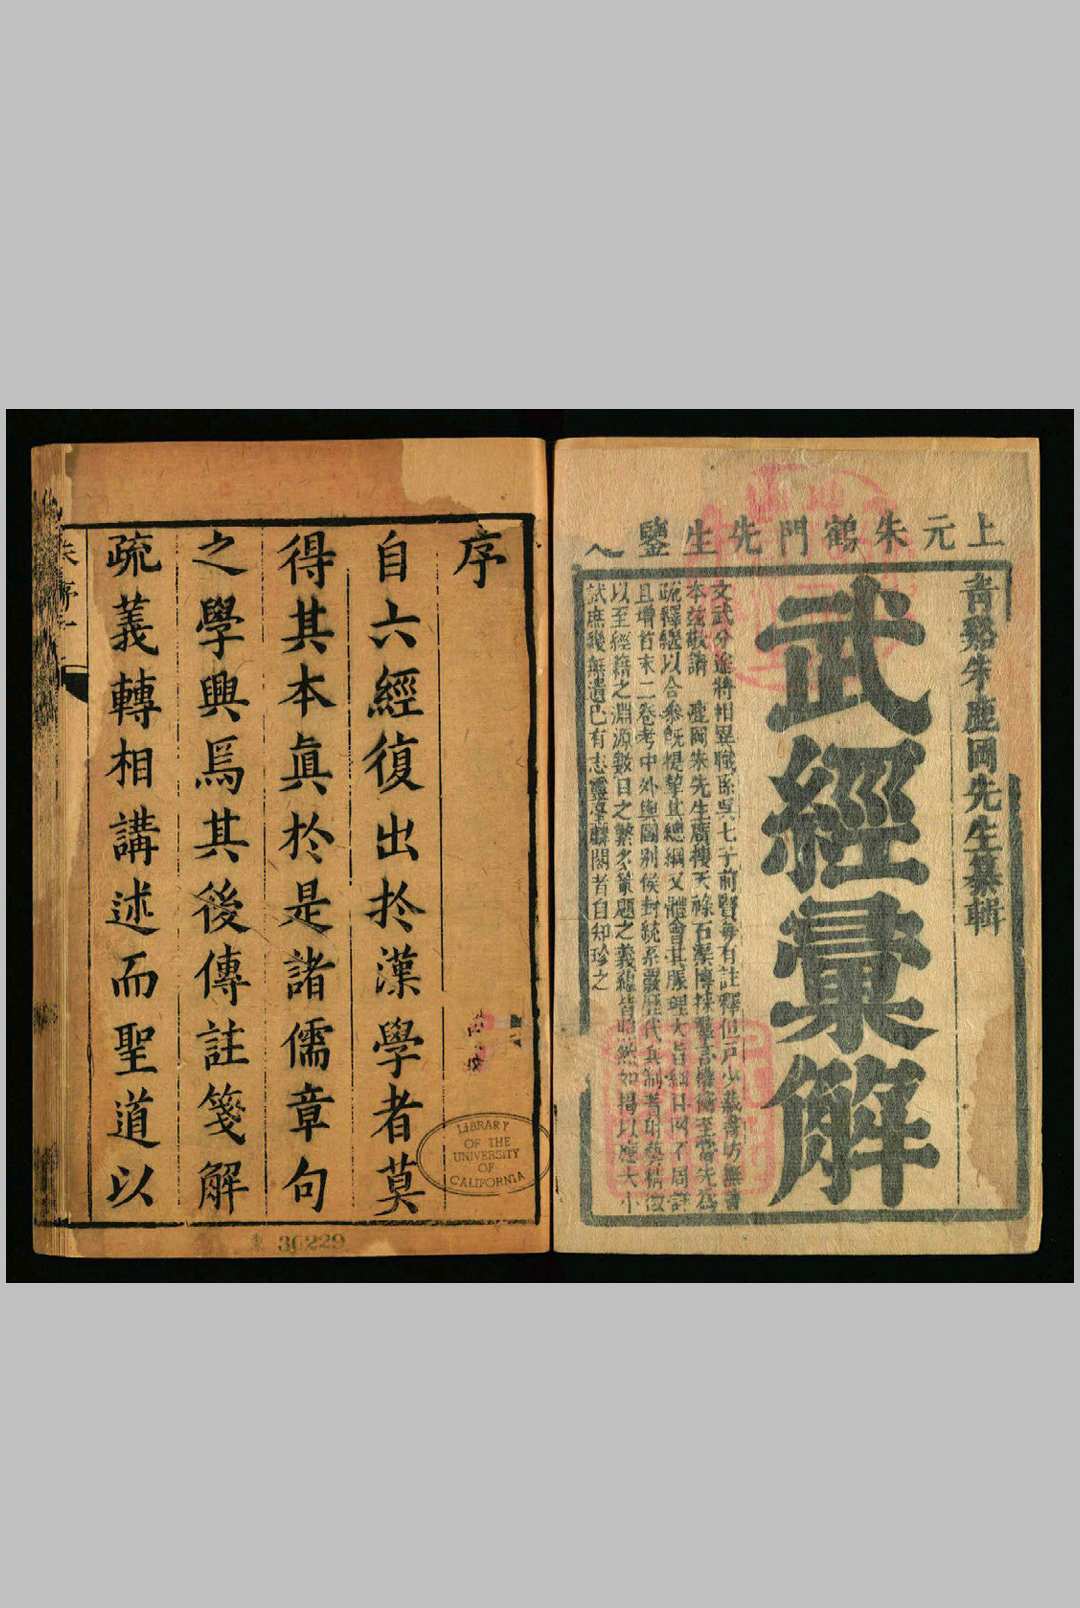 上元朱鶴門先生鑒定
青谿朱鹿岡先生纂輯
武經彙解
文武分途將相異職孫吳七子前賢每有註釋但戶少藏書坊無善
本茲敬請 鹿岡朱先生廣搜天祿石渠博採羣言機衡至當先為
疏釋繼以合參既提挈其總綱又體會其脈理大旨細目罔不周詳
且增首末二卷考中外輿圖別侯封統系叢歷代兵制著射藝精微
以至經籍之淵源數目之繁多策題之義總皆昭然如揭以應大小
試庶幾無遺已有志靈臺麟閣者自知珍之
序
自六經復出於漢學者莫
得其本眞於是諸儒章句
之學興焉其後傳註箋解
疏義轉相講述而聖道以
朱序 一
LIBRARY
OF THE
UNIVERSITY
OF
CALIFORNIA
30229